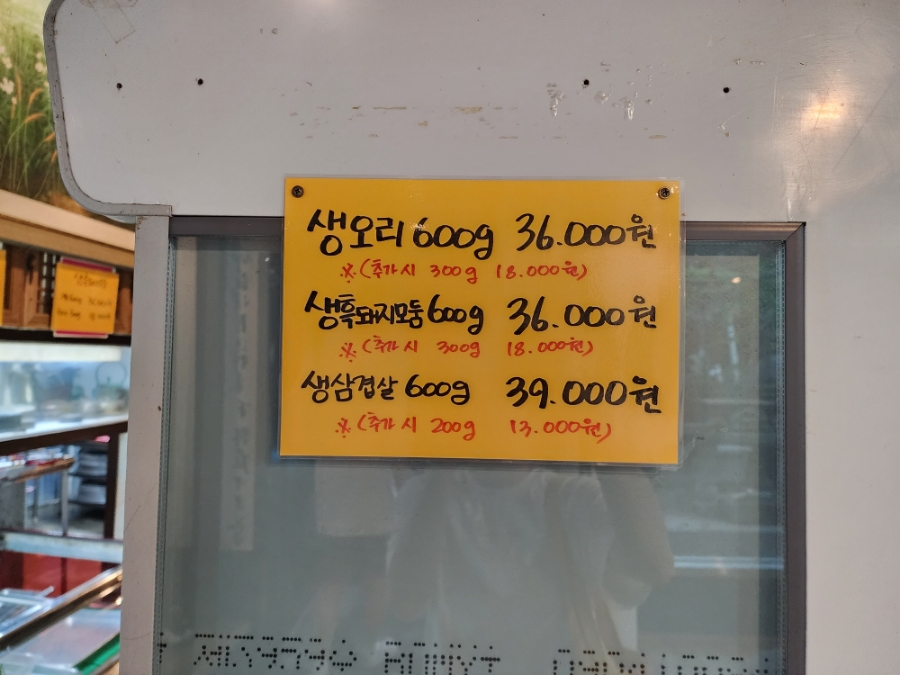 생오리 600g 36.000원
※(추가시 300g 18.000원)
생흑돼지모둠 600g 36.000원
※(추가시 300g 18.000원)
생삼겹살 600g 39.000원
※(추가시 200g 13.000원)